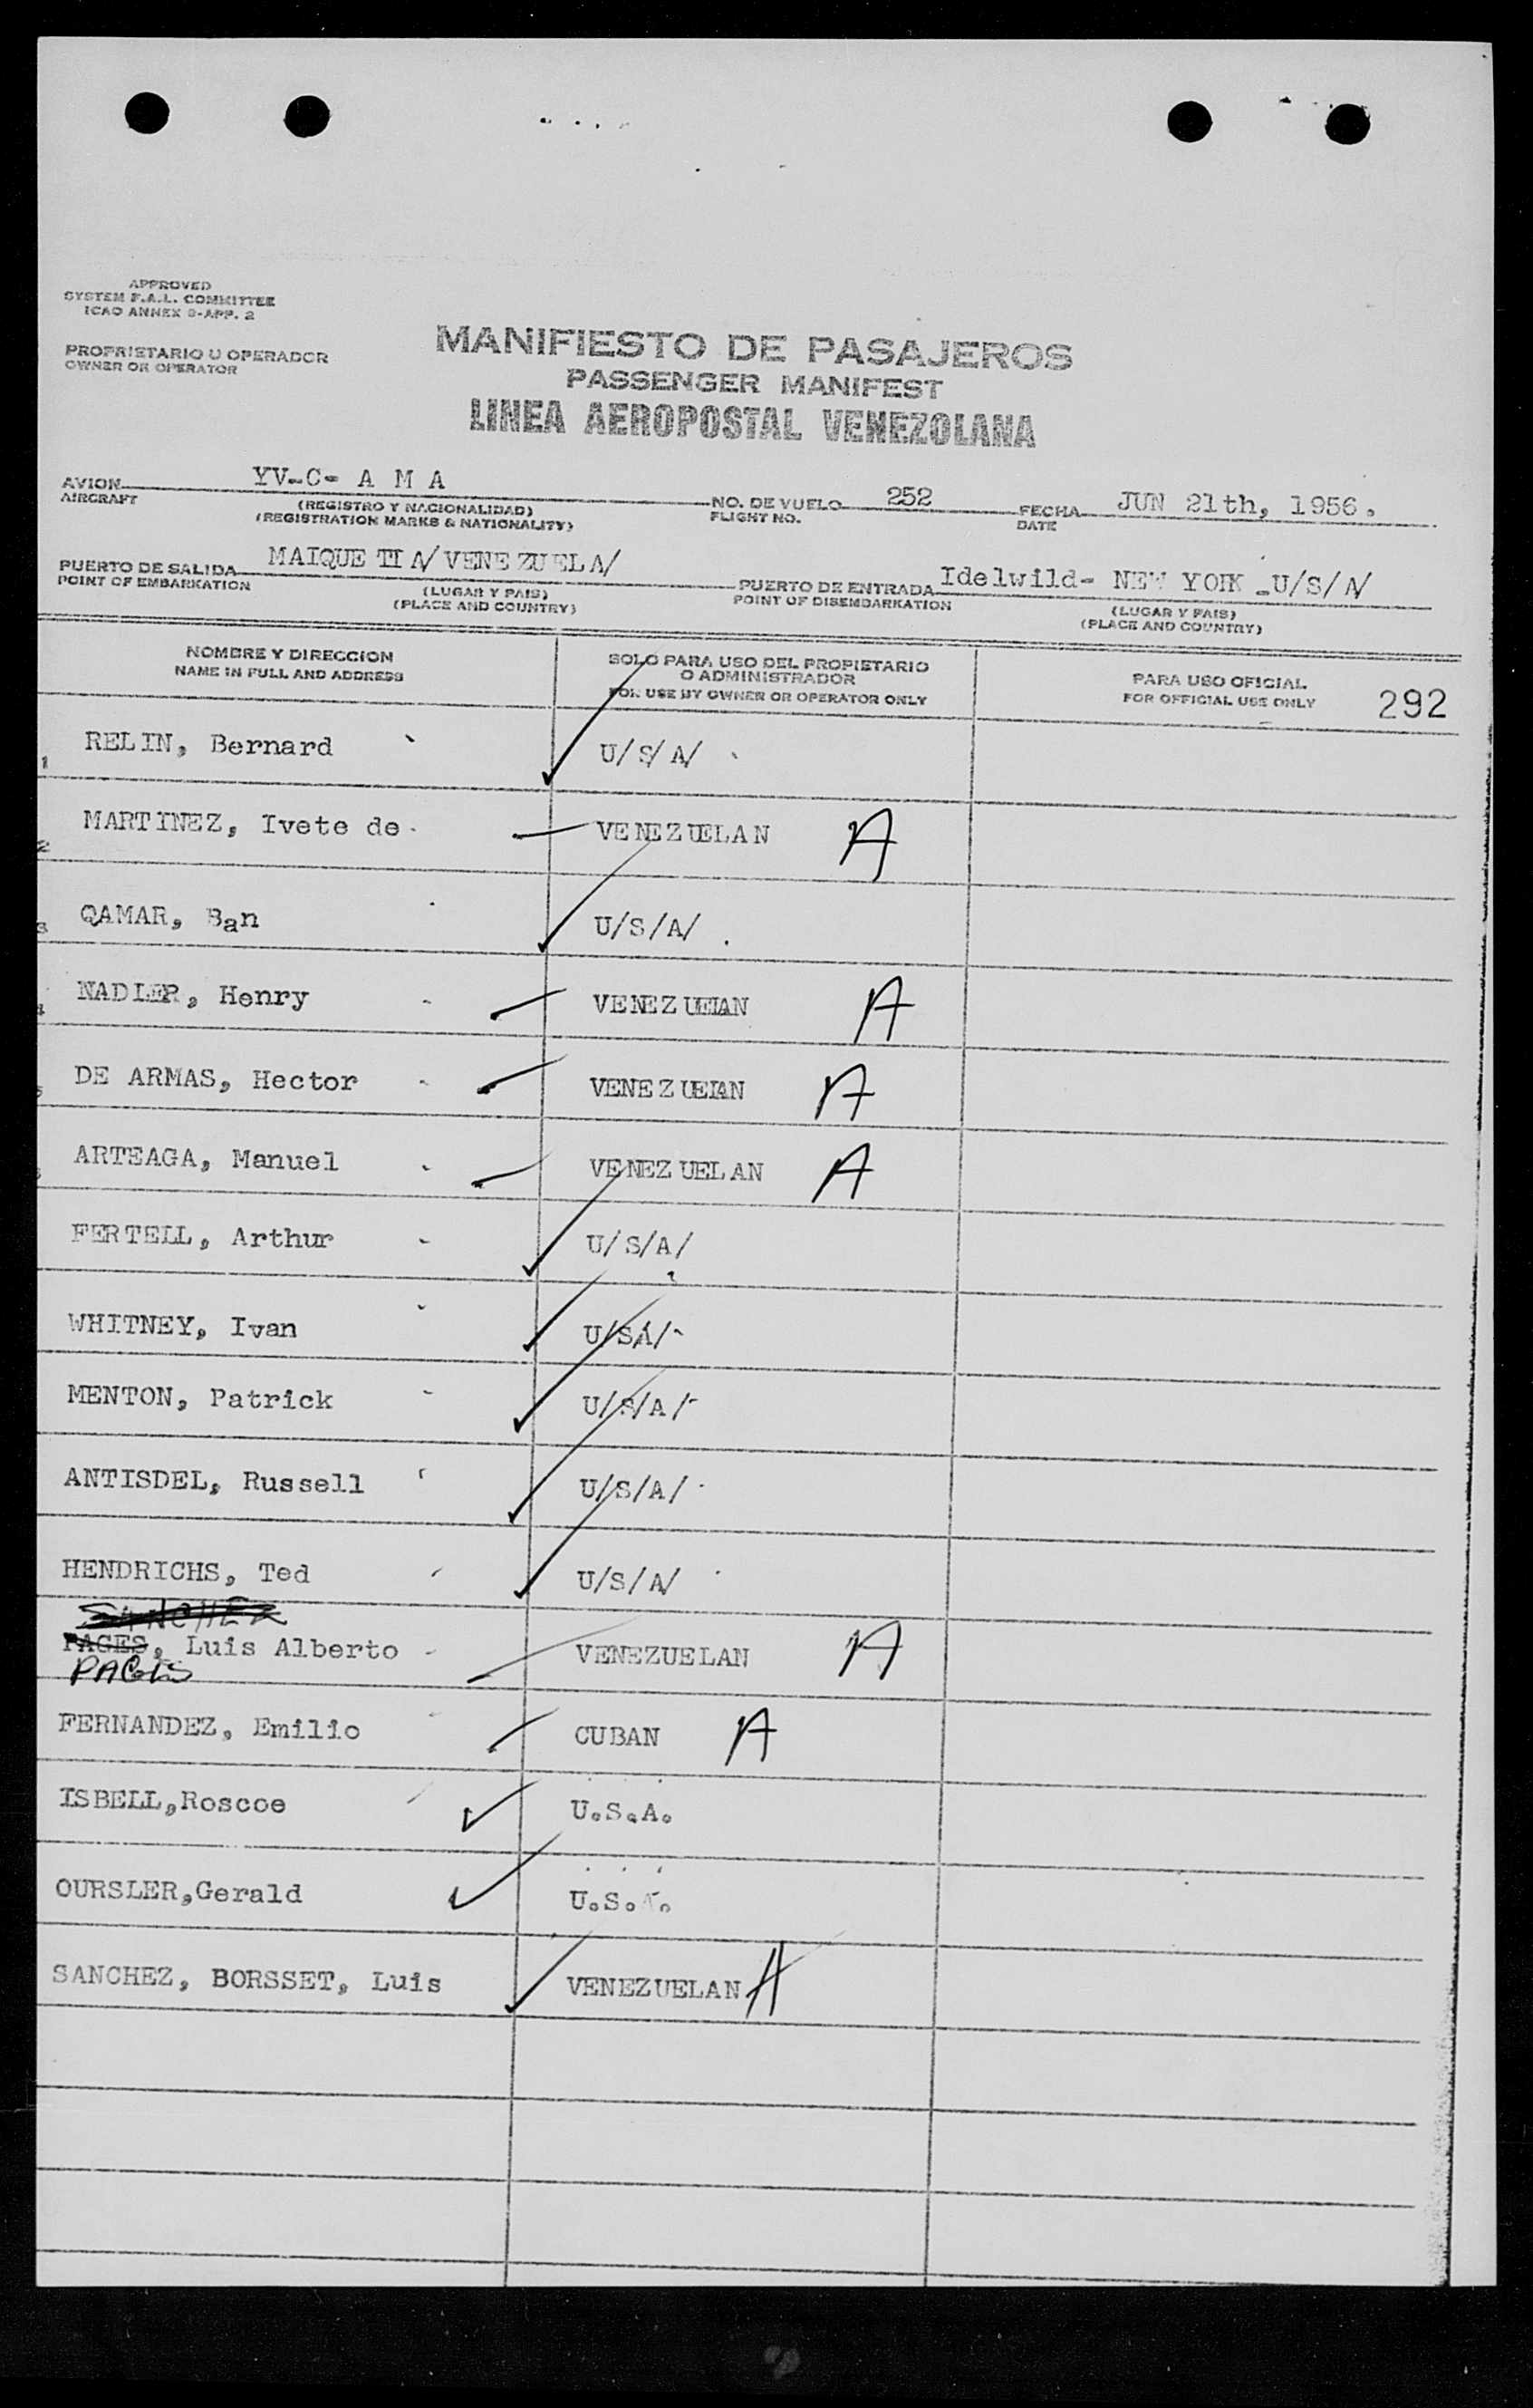 APPROVED
SYSTEM F.A.L. COMMITTEE
ICAO ANNEX 9-APP. 2
PROPRIETARIO U OPERADOR
OWNER OR OPERATOR
MANIFIESTO DE PASAJEROS
PASSENGER MANIFEST
LINEA AEROPOSTAL VENEZOLANA
AVION YV-C- A M A NO. DE VUELO 252 FECHA JUN 21th, 1956.
AIRCRAFT (REGISTRO Y NACIONALIDAD) FLIGHT NO. DATE
(REGISTRATION MARKS & NATIONALITY)
PUERTO DE SALIDA MAIQUETIA/ VENEZUELA/ PUERTO DE ENTRADA Idelwild- NEW YORK -U/S/A/
POINT OF EMBARKATION (LUGAR Y PAIS) POINT OF DISEMBARKATION (LUGAR Y PAIS)
(PLACE AND COUNTRY) (PLACE AND COUNTRY)
NOMBRE Y DIRECCION SOLO PARA USO DEL PROPIETARIO PARA USO OFICIAL
NAME IN FULL AND ADDRESS O ADMINISTRADOR FOR OFFICIAL USE ONLY 292
FOR USE BY OWNER OR OPERATOR ONLY
1 RELIN, Bernard U/S/A/
2 MARTINEZ, Ivete de VENEZUELAN A
3 QAMAR, Ban U/S/A/
4 NADLER, Henry VENEZUELAN A
5 DE ARMAS, Hector VENEZUELAN A
ARTEAGA, Manuel VENEZUELAN A
FERTELL, Arthur U/S/A/
WHITNEY, Ivan U/SA/
MENTON, Patrick U/S/A/
ANTISDEL, Russell U/S/A/
HENDRICHS, Ted U/S/A/
SANCHEZ
PAGES, Luis Alberto VENEZUELAN A
PAGES
FERNANDEZ, Emilio CUBAN A
ISBELL,Roscoe U.S.A.
OURSLER,Gerald U.S.A.
SANCHEZ, BORSSET, Luis VENEZUELAN A